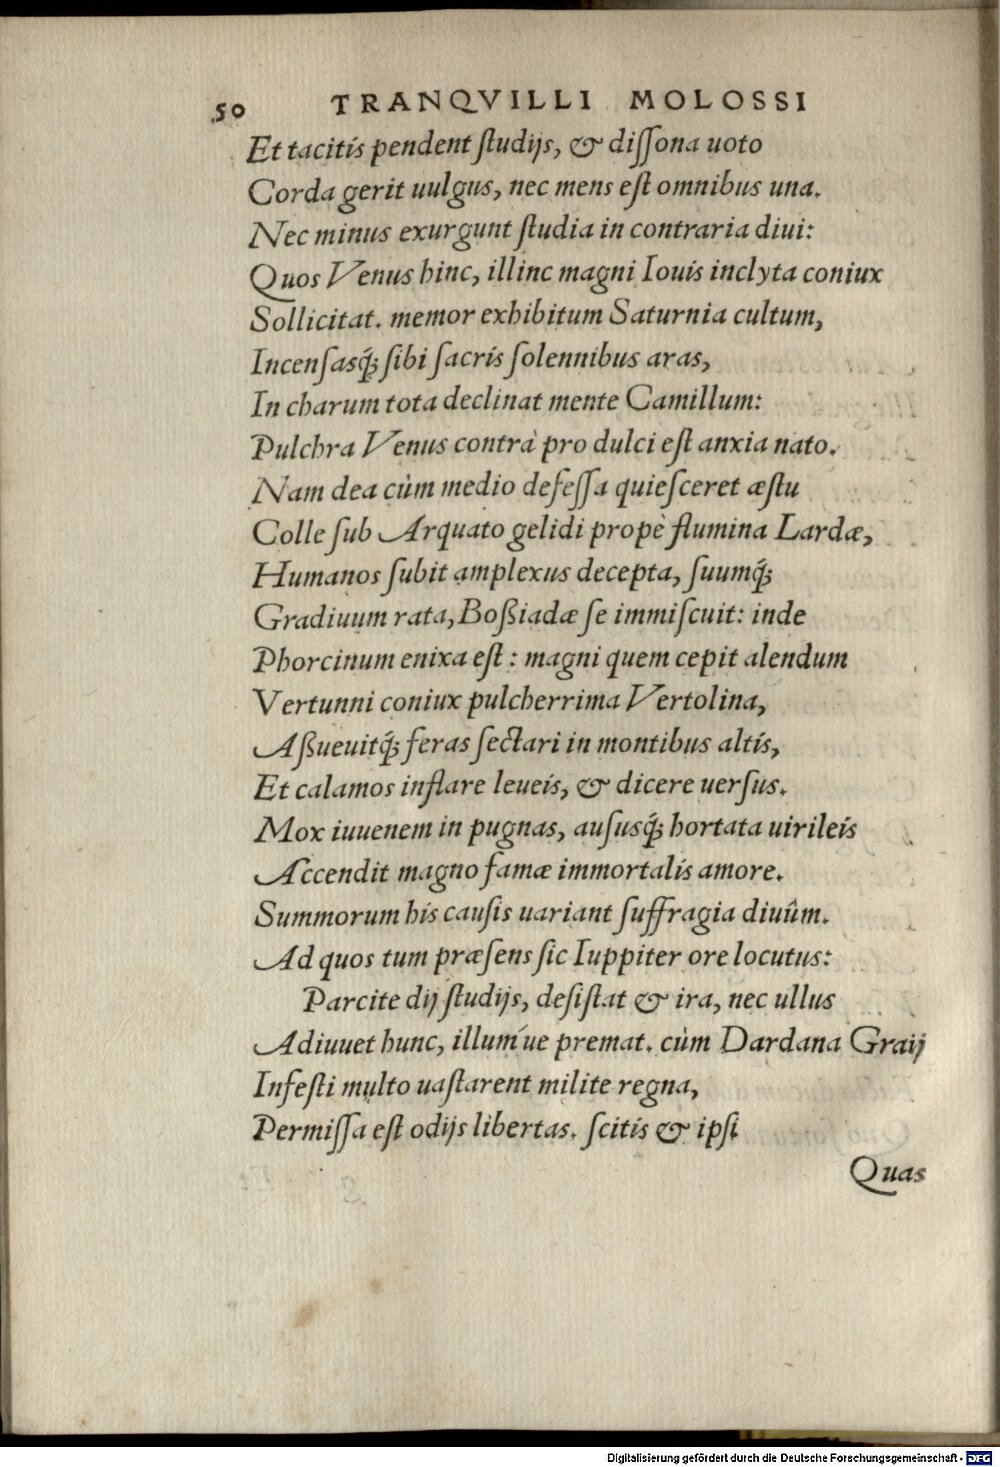 50 TRANQVILLI MOLOSSI
Et tacitis pendent ſtudijs, & diſſona uoto
Corda gerit uulgus, nec mens eſt omnibus una.
Nec minus exurgunt ſtudia in contraria diui:
Quos Venus hinc, illinc magni Iouis inclyta coniux
Sollicitat. memor exhibitum Saturnia cultum,
Incenſasq́; ſibi ſacris ſolennibus aras,
In charum tota declinat mente Camillum:
Pulchra Venus contrà pro dulci eſt anxia nato.
Nam dea cùm medio defeſſa quieſceret æſtu
Colle ſub Arquato gelidi propè flumina Lardæ,
Humanos ſubit amplexus decepta, ſuumq́;
Gradiuum rata, Boßiadæ ſe immiſcuit: inde
Phorcinum enixa eſt: magni quem cepit alendum
Vertunni coniux pulcherrima Vertolina,
Aßueuitq́; feras ſectari in montibus altis,
Et calamos inflare leueis, & dicere uerſus.
Mox iuuenem in pugnas, auſusq́; hortata uirileis
Accendit magno famæ immortalis amore.
Summorum his cauſis uariant ſuffragia diuûm.
Ad quos tum præſens ſic Iuppiter ore locutus:
Parcite dij ſtudijs, deſiſtat & ira, nec ullus
Adiuuet hunc, illum´ue premat. cùm Dardana Graij
Infeſti multo uaſtarent milite regna,
Permiſſa eſt odijs libertas. ſcitis & ipſi
Quas
Digitalisierung gefördert durch die Deutsche Forschungsgemeinschaft - DFG